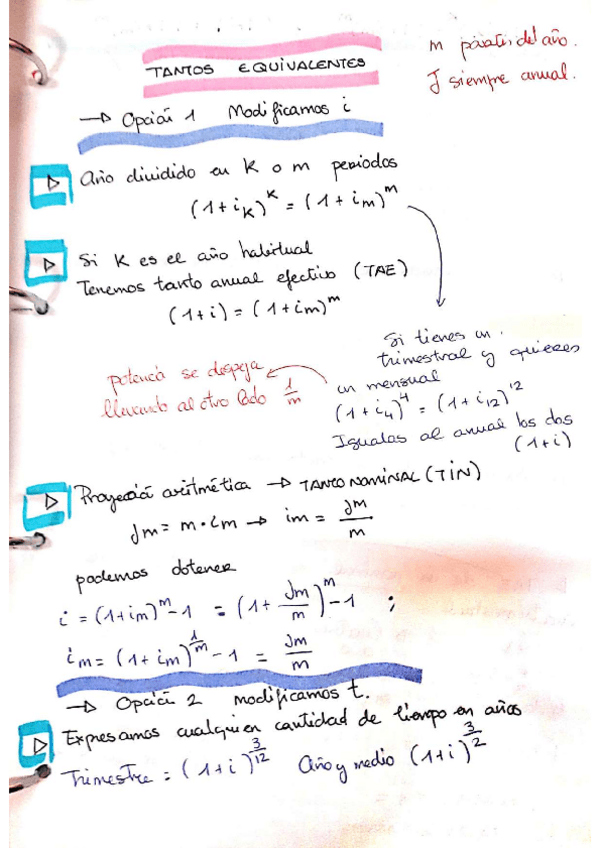 m partes del año.
J siempre anual.
TANTOS EQUIVALENTES
→ Opción 1 Modificamos i
Año dividido en K o m periodos
(1+i_K)^K = (1+i_m)^m
Si K es el año habitual
Tenemos tanto anual efectivo (TAE)
(1+i) = (1+i_m)^m
Si tienes un
trimestral y quieres
un mensual
(1+i_4)^4 = (1+i_12)^12
Igualas al anual los dos
(1+i)
potencia se despeja
llevando al otro lado 1/m
Proyección aritmética → TANTO NOMINAL (TIN)
Jm = m·im → im = Jm/m
podemos obtener
i = (1+im)^m - 1 = (1+ Jm/m)^m - 1 ;
im = (1+im)^(1/m) - 1 = Jm/m
→ Opción 2 modificamos t.
Expresamos cualquier cantidad de tiempo en años
Trimestre = (1+i)^(3/12) Año y medio (1+i)^(3/2)